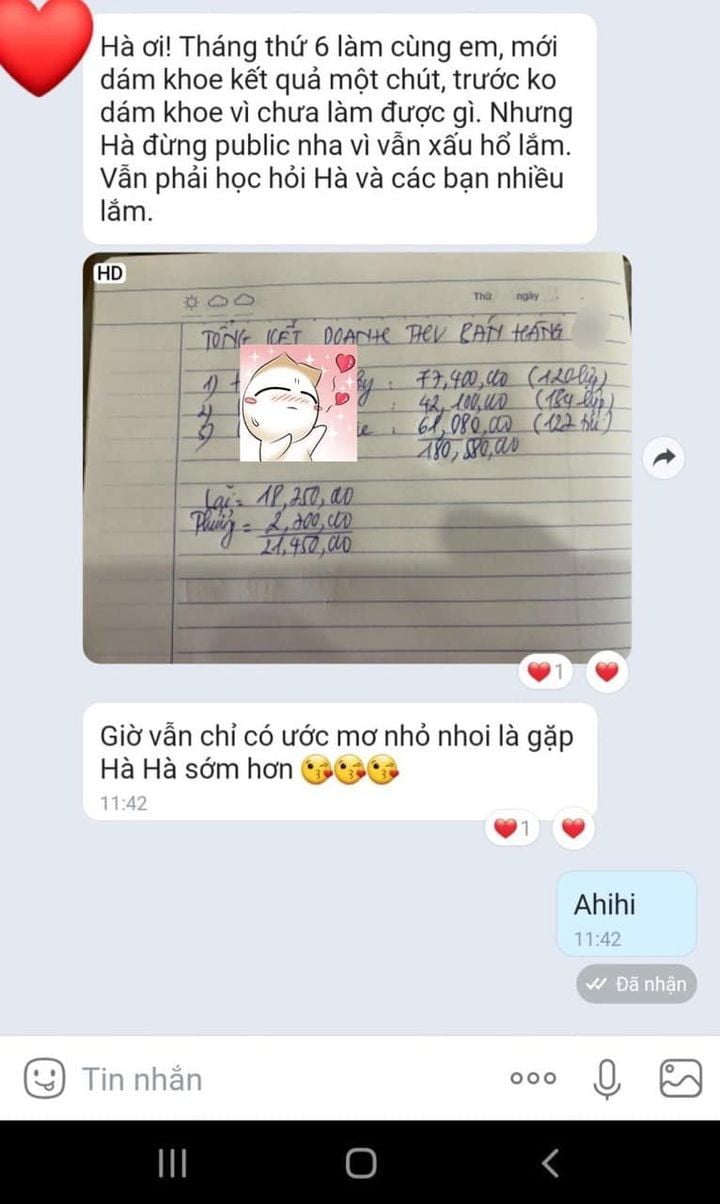 Hà ơi! Tháng thứ 6 làm cùng em, mới
dám khoe kết quả một chút, trước ko
dám khoe vì chưa làm được gì. Nhưng
Hà đừng public nha vì vẫn xấu hổ lắm.
Vẫn phải học hỏi Hà và các bạn nhiều
lắm.
HD
Thứ ngày
TỔNG KẾT DOANH THU BÁN HÀNG
1) : 77,400,00
2) : 42,100,00
3) : 61,080,00
180,580,00
Lãi =
= 2,200,00
21,450,00
1
Giờ vẫn chỉ có ước mơ nhỏ nhoi là gặp
Hà Hà sớm hơn 😘😘😘
11:42
1
Ahihi
11:42
Đã nhận
Tin nhắn